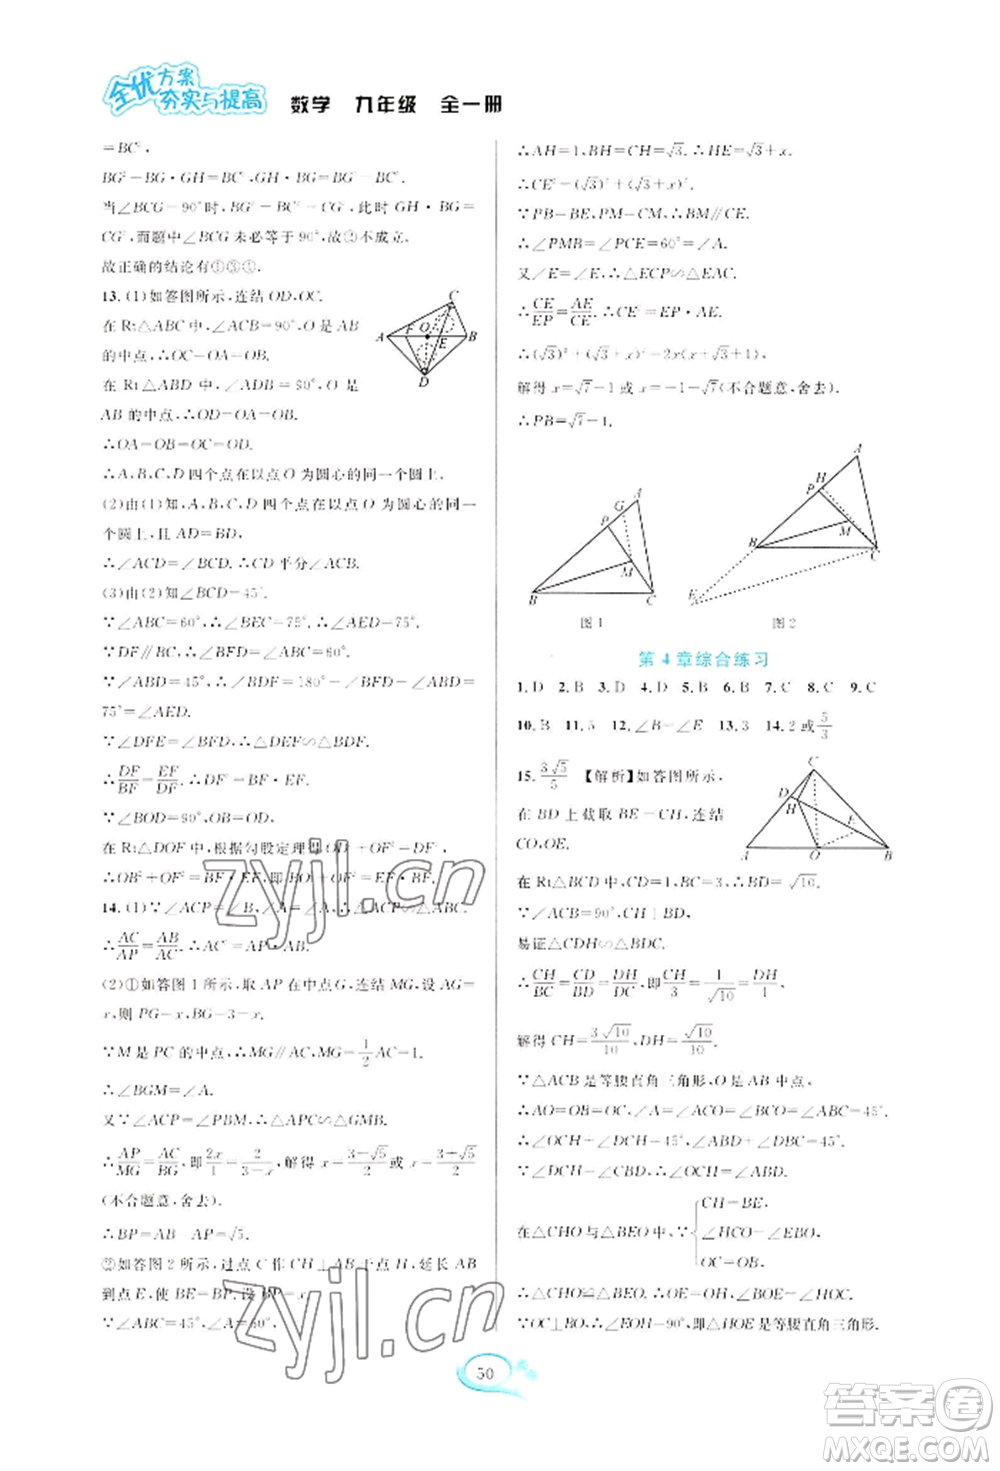 全优方案
夯实与提高 数学 九年级 全一册
=BC²,
BG²-BG·GH=BC²,BG²-BG·GH=BG²-BC².
当∠BCG=90°时,BG²-BC²=CG²,此时 GH·BG=
CG²,而题中∠BCG 未必等于 90°,故②不成立.
故正确的结论有①③④.
13.(1)如答图所示,连结 OD,OC.
在 Rt△ABC 中,∠ACB=90°,O 是 AB
的中点,∴OC=OA=OB.
在 Rt△ABD 中,∠ADB=90°,O 是
AB 的中点,∴OD=OA=OB.
∴OA=OB=OC=OD.
∴A,B,C,D 四个点在以点 O 为圆心的同一个圆上.
(2)由(1)知,A,B,C,D 四个点在以点 O 为圆心的同一
个圆上,且 AD=BD,
∴∠ACD=∠BCD.∴CD 平分∠ACB.
(3)由(2)知∠BCD=45°.
∵∠ABC=60°,∴∠BEC=75°.∴∠AED=75°.
∵DF∥BC,∴∠BFD=∠ABC=60°.
∵∠ABD=45°,∴∠BDF=180°-∠BFD-∠ABD=
75°=∠AED.
∵∠DFE=∠BFD,∴△DEF∽△BDF.
∴DF/BF=EF/DF.∴DF²=BF·EF.
∵∠BOD=90°,OB=OD,
在 Rt△DOF 中,根据勾股定理得 OD²+OF²=DF².
∴OB²+OF²=BF·EF,即 BO²+OF²=EF·BF.
14.(1)∵∠ACP=∠B,∠A=∠A,∴△ACP∽△ABC.
∴AC/AP=AB/AC.∴AC²=AP·AB.
(2)①如答图 1 所示,取 AP 在中点 G,连结 MG,设 AG
=x,则 PG=x,BG=3-x.
∵M 是 PC 的中点,∴MG∥AC,MG=1/2AC=1.
∴∠BGM=∠A.
又∵∠ACP=∠PBM,∴△APC∽△GMB.
∴AP/MG=AC/BG,即2x/1=2/(3-x),解得 x=(3-√5)/2或 x=(3+√5)/2
(不合题意,舍去).
∴BP=AB-AP=√5.
②如答图 2 所示,过点 C 作 CH⊥AB于点 H,延长 AB
到点 E,使 BE=BP,设 BP=x.
∵∠ABC=45°,∠A=60°,
∴AH=1,BH=CH=√3.∴HE=√3+x.
∴CE²=(√3)²+(√3+x)².
∵PB=BE,PM=CM,∴BM∥CE.
∴∠PMB=∠PCE=60°=∠A.
又∠E=∠E,∴△ECP∽△EAC.
∴CE/EP=AE/CE.
∴(√3)²+(√3+x)²=2x(√3+x+1).
解得 x=√7-1 或 x=-1-√7(不合题意,舍去).
∴PB=√7-1.
图 1 图 2
第 4 章综合练习
1.D 2.B 3.D 4.D 5.B 6.B 7.C 8.C 9.C
10.B 11.5 12.∠B=∠E 13.3 14.2 或5/3
15.3√5/5 【解析】如答图所示,
在 BD 上截取 BE=CH,连结
CO,OE.
在 Rt△BCD 中,CD=1,BC=3,∴BD=√10.
∵∠ACB=90°,CH⊥BD,
易证△CDH∽△BDC.
∴CH/BC=CD/BD=DH/DC,即CH/3=1/√10=DH/1,
解得 CH=3√10/10,DH=√10/10.
∵△ACB 是等腰直角三角形,O 是 AB 中点,
∴AO=OB=OC,∠A=∠ACO=∠BCO=∠ABC=45°.
∴∠OCH+∠DCH=45°,∠ABD+∠DBC=45°.
∵∠DCH=∠CBD,∴∠OCH=∠ABD.
在△CHO 与△BEO 中,∵{CH=BE, ∠HCO=∠EBO, OC=OB.
∴△CHO≌△BEO.∴OE=OH,∠BOE=∠HOC.
∵OC⊥BO,∴∠EOH=90°,即△HOE是等腰直角三角形.
50
zyjl.cn
zyjl.cn
答案圈
MXQE.COM